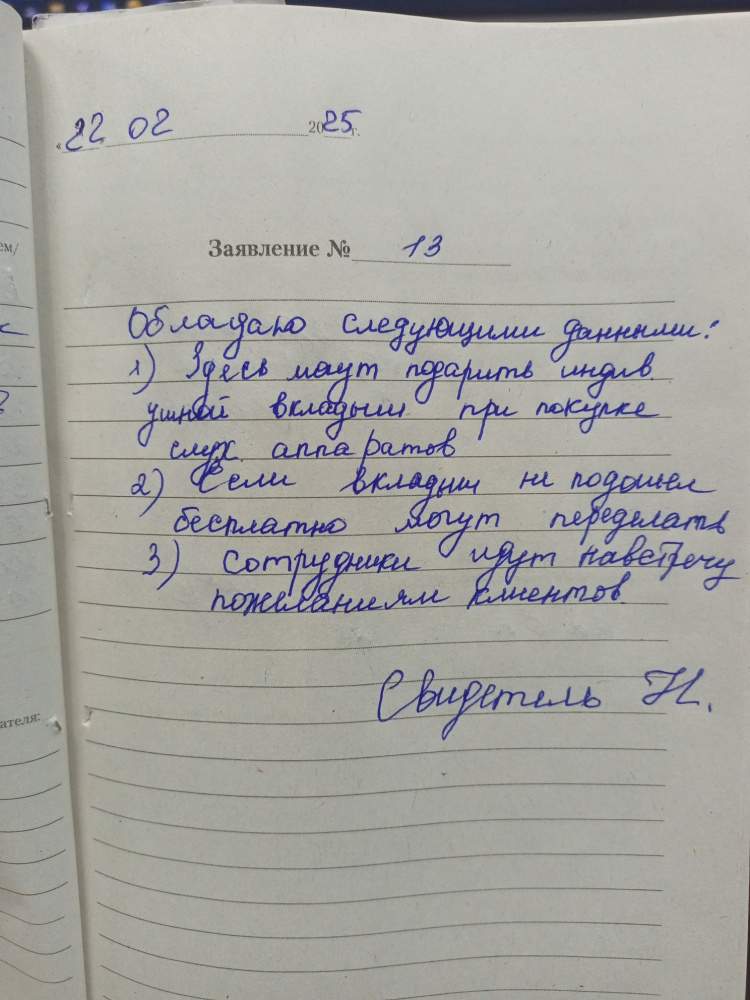 «22 02 2025г.
Заявление № 13
Обладаю следующими данными:
1) Здесь могут подарить индив.
ушной вкладыш при покупке
слух. аппаратов
2) Если вкладыш не подошел
бесплатно могут переделать
3) Сотрудники идут навстречу
пожеланиям клиентов.
Свидетель Н.
ем/
ателя: